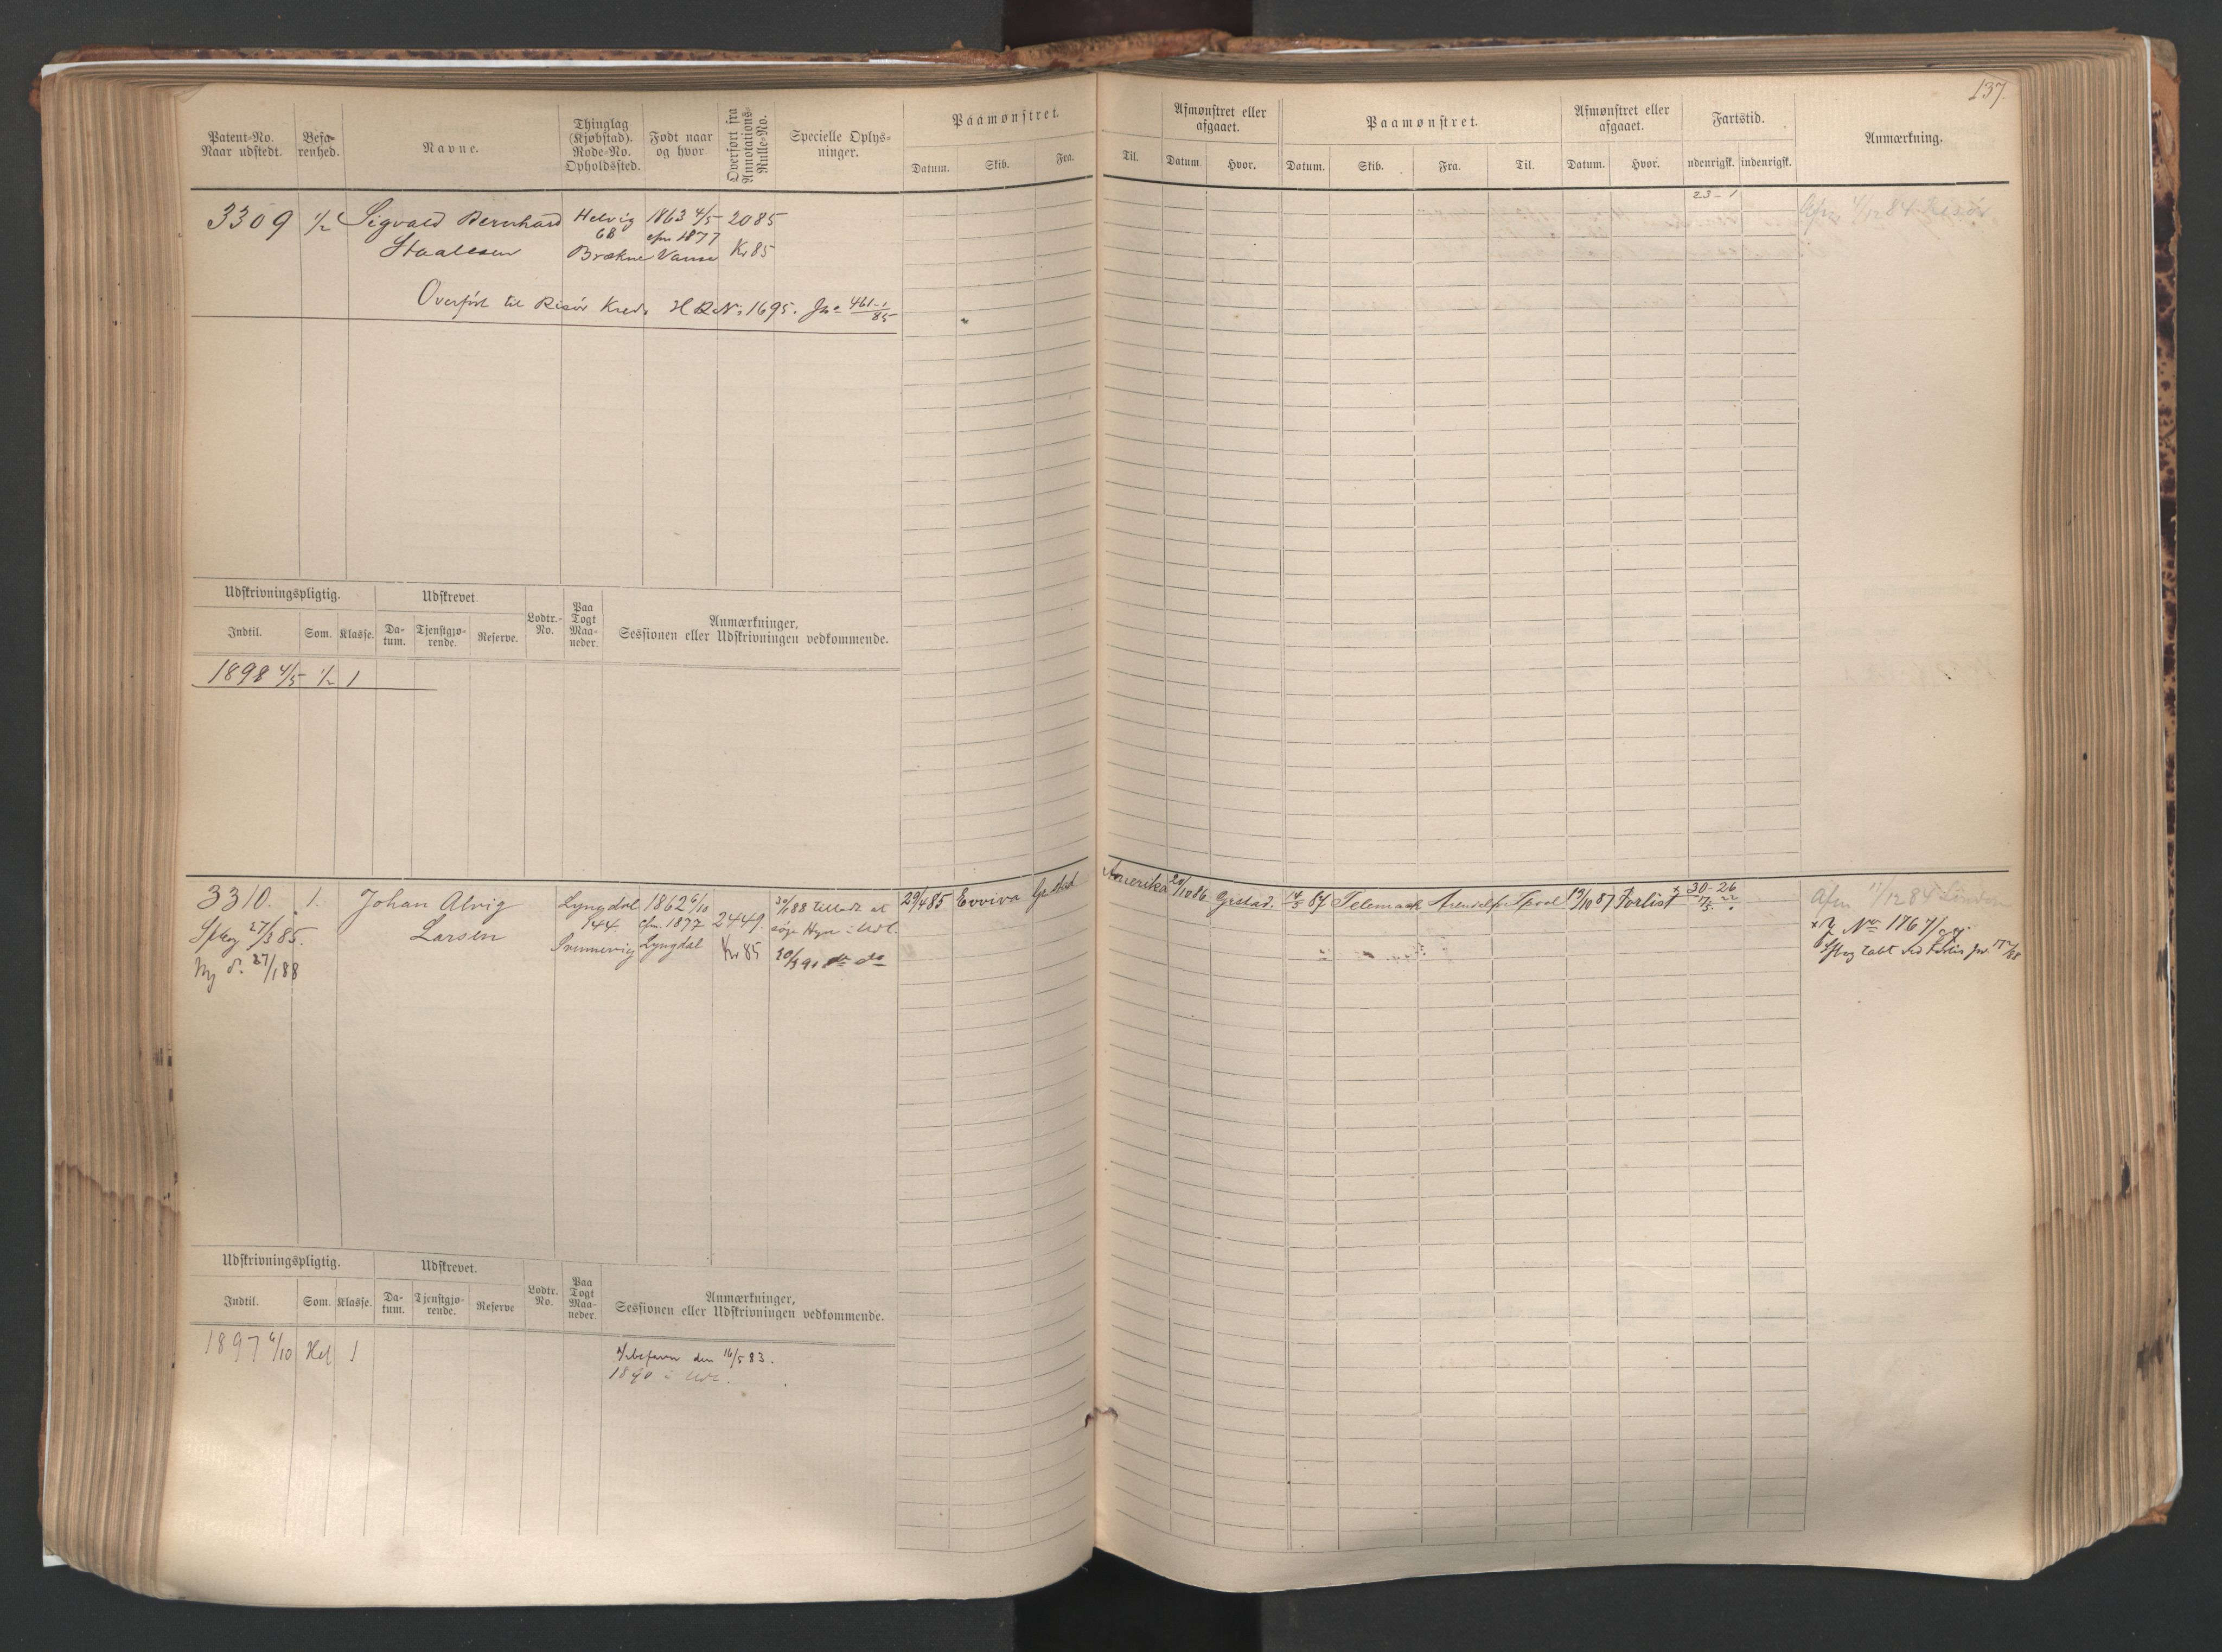 137.
Patent-No. Naar udstedt.
Befa-renhed.
Navne.
Thinglag (Kjøbstad). Rode-No. Opholdssted.
Født naar og hvor.
Overført fra Annotations-Rulle-No.
Specielle Oplys-ninger.
Paamønstret.
Datum. Skib. Fra. Til.
Afmønstret eller afgaaet.
Datum. Hvor.
Paamønstret.
Datum. Skib. Fra. Til.
Afmønstret eller afgaaet.
Datum. Hvor.
Fartstid.
udenrigsk. indenrigsk.
Anmærkning.
3309 1/2 Sigvald Bernhard Helvig 1863 4/5 2085 23-1
68 cfm 1877
Staalesen Brækne Vanse Kr 85
Overført til Risør Kreds H R No 1695. Jno 461-1/85
Udskrivningspligtig. Udskrevet. Lodtr.-No. Paa Togt Maa-neder. Anmærkninger,
Indtil. Som. Klasse. Da-tum. Tjenstgjø-rende. Reserve. Sessionen eller Udskrivningen vedkommende.
1898 4/5 1/2 1
3310. 1. Johan Alvig Lyngdal 1862 6/10 2449. 30/1 88 tilladt at 29/4 85 Evviva Grstad Amerika 20/10 86 Grstad. 14/5 87 Telemack Arendal 19/10 87 Forlist x 30-26
Larsen 144 cfm. 1877 søge Hyre i Udl.
27/3 85. Lyngdal Kr 85 do do
Ny d. 27/1 88
Afm 11/12 84
No 1767/87
tabt ved Forlis
Udskrivningspligtig. Udskrevet. Lodtr. No. Paa Togt Maa-neder. Anmærkninger,
Indtil. Som. Klasse. Da-tum. Tjenstgjø-rende. Reserve Sessionen eller Udskrivningen vedkommende.
1897 6/10 Hel 1 den 16/5 83.
1890 i Udl.